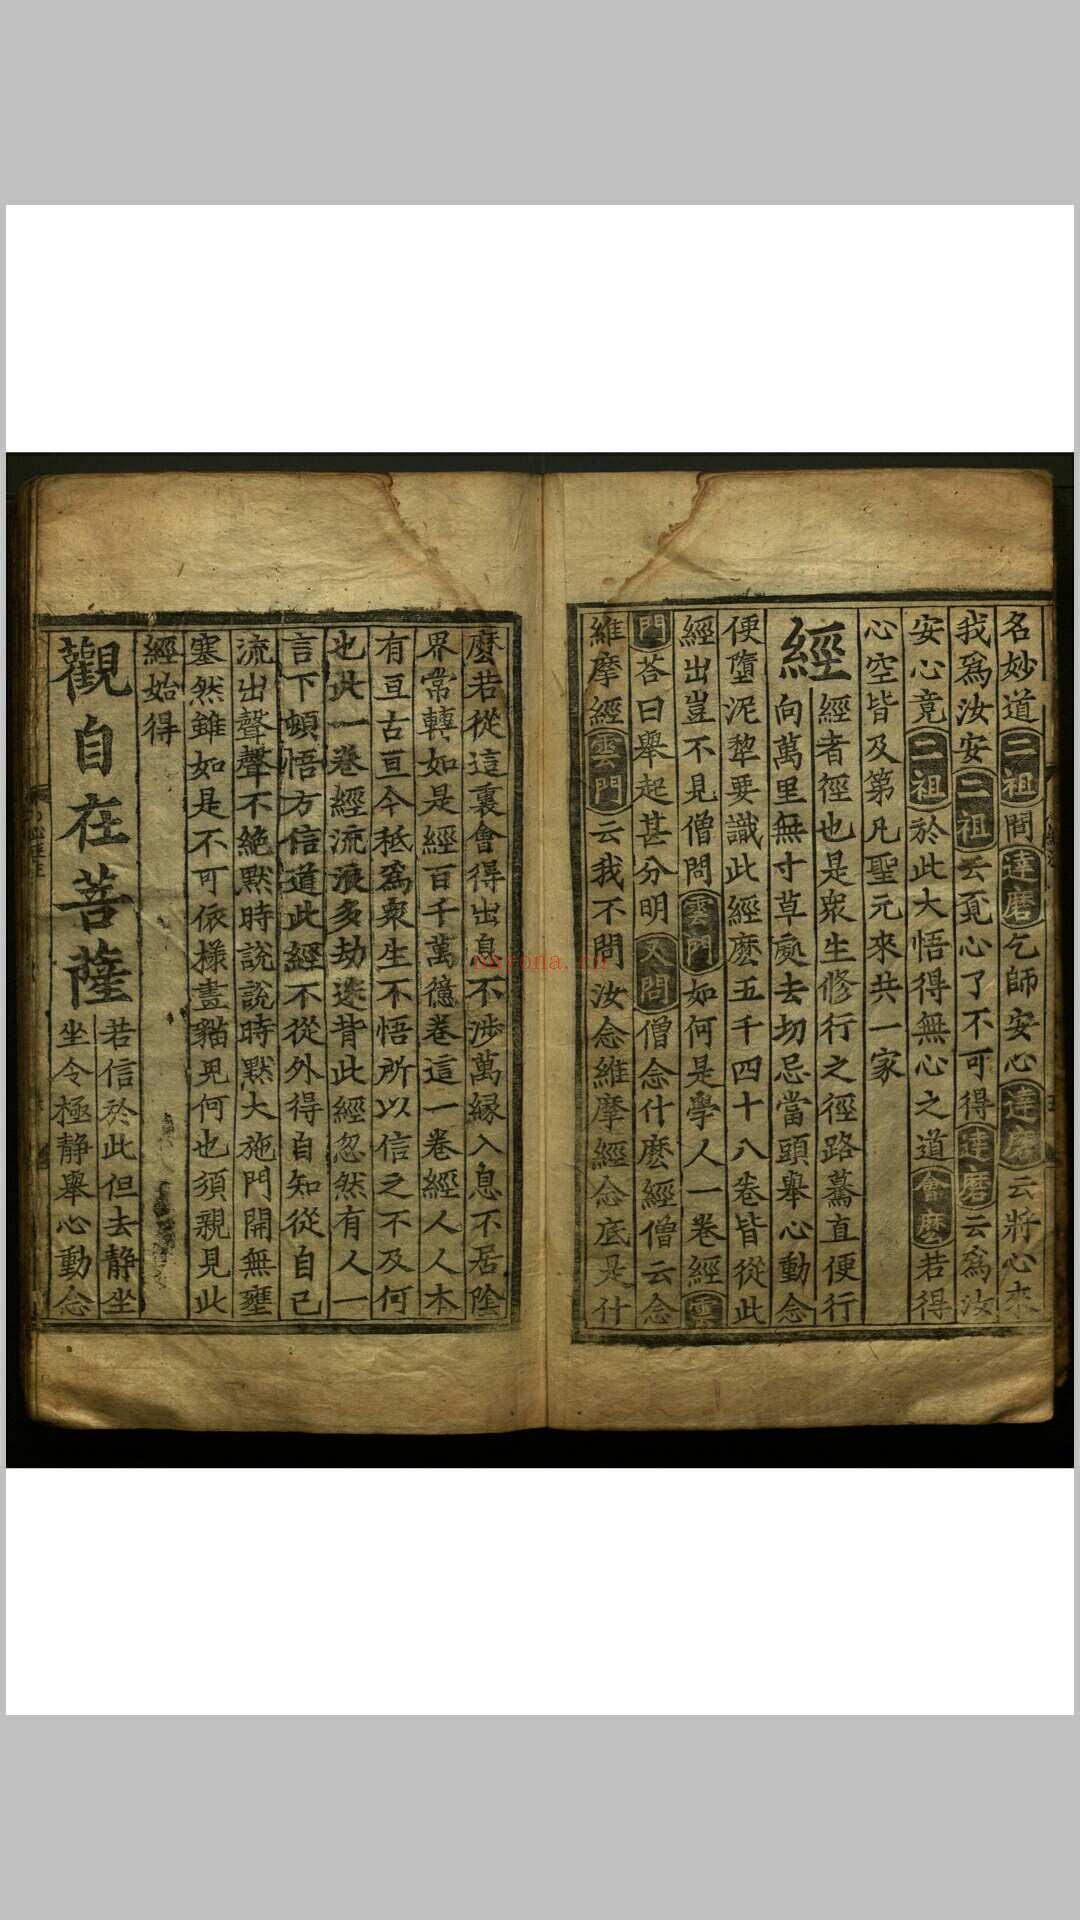 名妙道二祖問達磨乞師安心達磨云將心來
我爲汝安二祖云覓心了不可得達磨云爲汝
安心竟二祖於此大悟得無心之道會麽若得
心空皆及第凡聖元來共一家
經
經者徑也是衆生修行之徑路驀直便行
向萬里無寸草處去切忌當頭舉心動念
便墮泥犂要識此經麽五千四十八卷皆從此
經出豈不見僧問雲門如何是學人一卷經雲
門荅曰舉起甚分明又問僧念什麽經僧云念
維摩經雲門云我不問汝念維摩經念底是什
麽若從這裏會得出息不涉萬緣入息不居陰
界常轉如是經百千萬億卷這一卷經人人本
有亘古亘今秪爲衆生不悟所以信之不及何
也此一卷經流浪多劫迷背此經忽然有人一
言下頓悟方信道此經不從外得自知從自己
流出聲聲不絶默時説説時默大施門開無壅
塞然雖如是不可依樣畫貓兒何也須親見此
經始得
觀自在菩薩
若信於此但去靜坐
坐令極靜舉心動念
nayona.cn